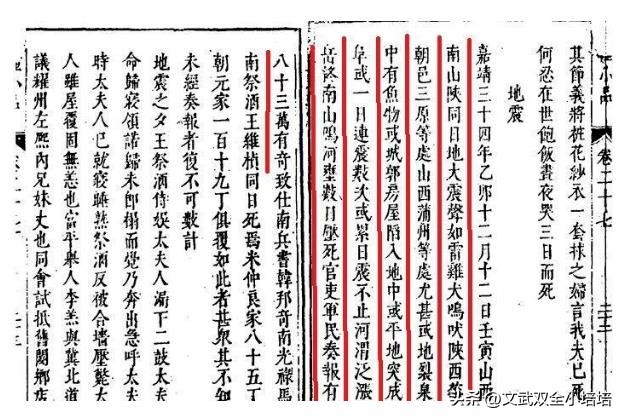 小品
卷二十七
二十三
其節義將桩花紗衣一套抹之婦言我夫已死
何忍在世飽飯晝夜哭三日而死
地震
嘉靖三十四年乙卯十二月十二日壬寅山西
南山陜同日地大震聲如雷雞犬鳴吠陜西
朝邑三原等處山西蒲州等處尤甚或地裂泉
中有魚物或城郭房屋陷入地中或平地突成
阜或一日連震數次或累日震不止河渭泛漲
岳終南山鳴河壅數日壓死官吏軍民奏報有
八十三萬有奇致仕南兵書韓邦奇南光祿馬
南祭酒王維楨同日死焉米仲良家八十五丁
朝元家一百十九丁俱覆如此者甚衆其不知
未經奏報者復不可數計
地震之夕王祭酒侍娱太夫人漏下二鼓太夫
命歸寢領諾歸未即榻而覺乃奔出急呼太夫
時太夫人已就寢睡熟祭酒反被合墻壓斃太
人雖屋覆固無恙也富平舉人李羔與冀北道
議耀州左熙內兄妹丈也同會試抵舊閿鄉店
头条 @文武双全小培培